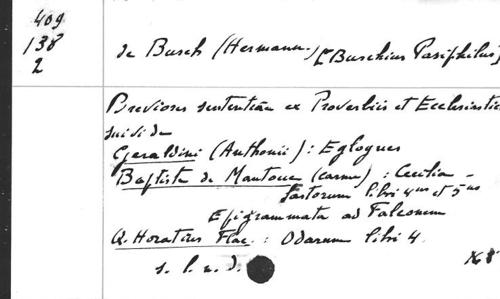 409
138
2
de Busch (Hermann) [Buschius Pasiphilus]
Breviores sententiae ex Proverbiis et Ecclesiastic
suivi de
Geraldini (Anthonii) : Eglogues
Baptiste de Mantoue (carme) : Cecilia -
Fastorum libri 4us et 5us
Epigrammata ad Falconem
Q. Horatius Flac. : Odarum libri 4
s. l. n. d.